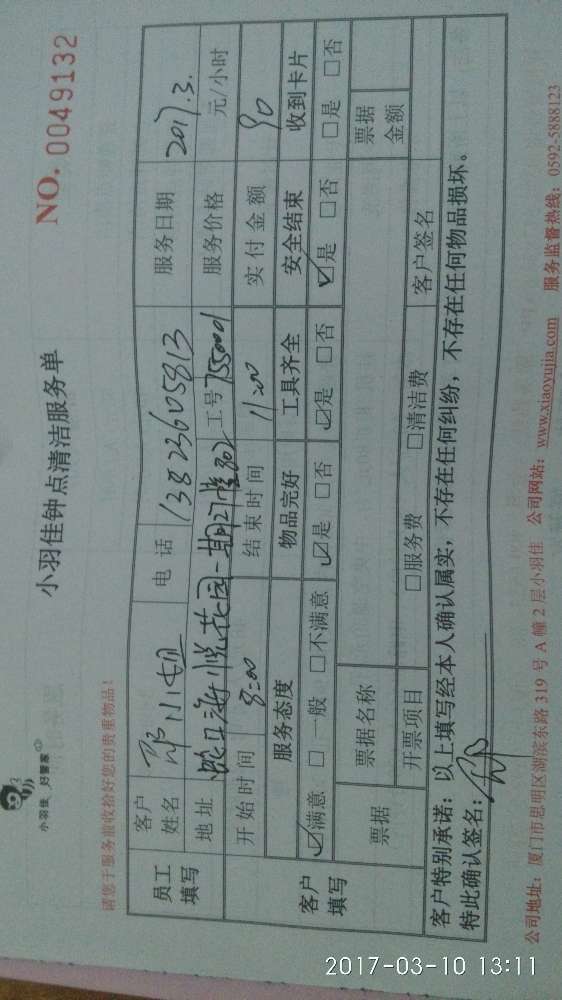 小羽佳 好管家
小羽佳钟点清洁服务单
NO. 0049132
请您于服务前收拾好您的贵重物品!
员工填写
客户姓名 邵小姐 电话 13823605813 服务日期 2017.3.
地址 海悦花园一期 工号 服务价格 元/小时
开始时间 8:00 结束时间 11:00 实付金额 90
客户填写
服务态度 物品完好 工具齐全 安全结束 收到卡片
☑满意 □一般 □不满意 ☑是 □否 ☑是 □否 ☑是 □否 □是 □否
票据 票据名称 票据金额
开票项目 □服务费 □清洁费 客户签名
客户特别承诺:以上填写经本人确认属实,不存在任何纠纷,不存在任何物品损坏。
特此确认签名:邵
公司地址:厦门市思明区湖滨东路 319 号 A 幢 2 层小羽佳 公司网站:www.xiaoyujia.com 服务监督热线:0592-5888123
2017-03-10 13:11